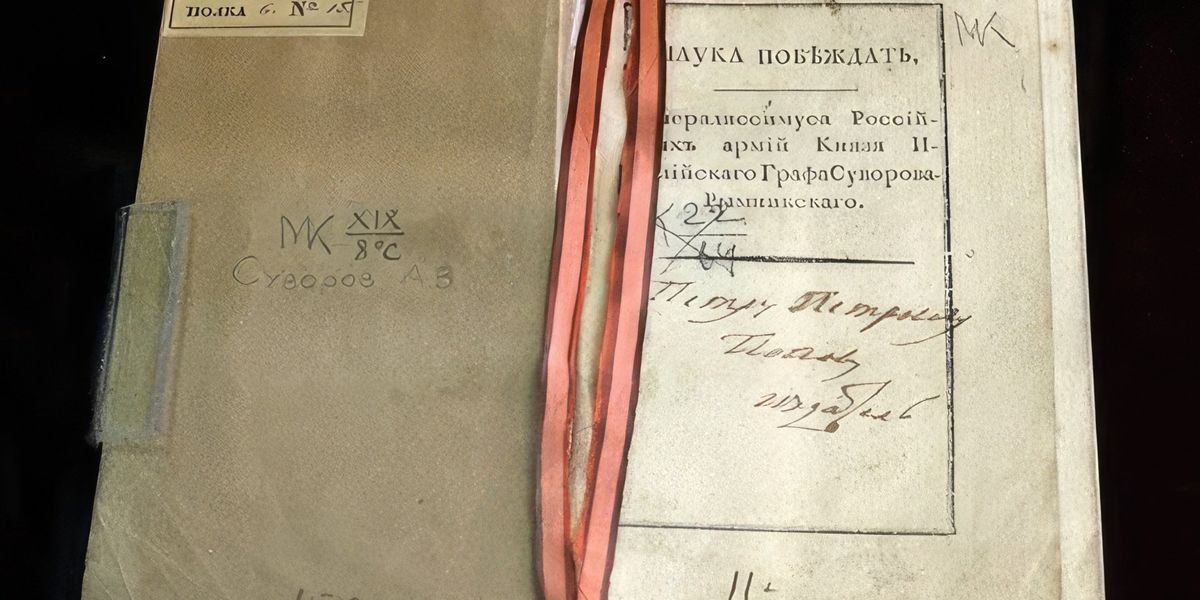 ПОЛКА 6. № 15
МК XIX
8°С
Суворов А В
МК
НАУКА ПОБѢЖДАТЬ,
нералиссимуса Россій-
ихъ армій Князя И-
лійскаго Графа Суворова-
Рымникскаго.
22
Петру Петровичу
Попову
издатель